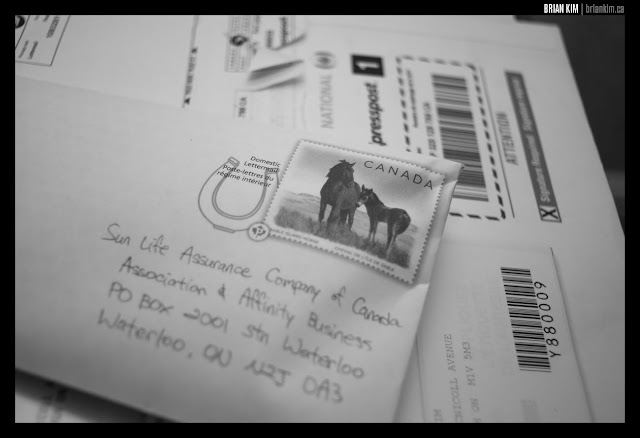 BRIAN KIM | briankim.ca
NATIONAL
presspost 1
ATTENTION
X Signature
Domestic
Lettermail
Poste-lettres du
régime intérieur
CANADA
P
Sun Life Assurance Company of Canada
Association & Affinity Business
PO Box 2001 stn Waterloo
Waterloo, ON N2J 0A3
Y880009
NICOLL AVENUE
ON M1V 5M3